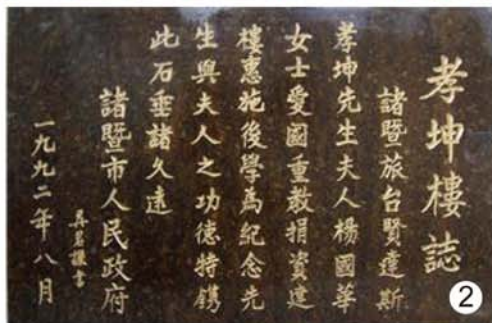 孝坤樓誌
諸暨旅台賢達斯
孝坤先生夫人楊國華
女士愛國重教捐資建
樓惠施後學為紀念先
生與夫人之功德特鐫
此石垂諸久遠
諸暨市人民政府
一九九二年八月
2